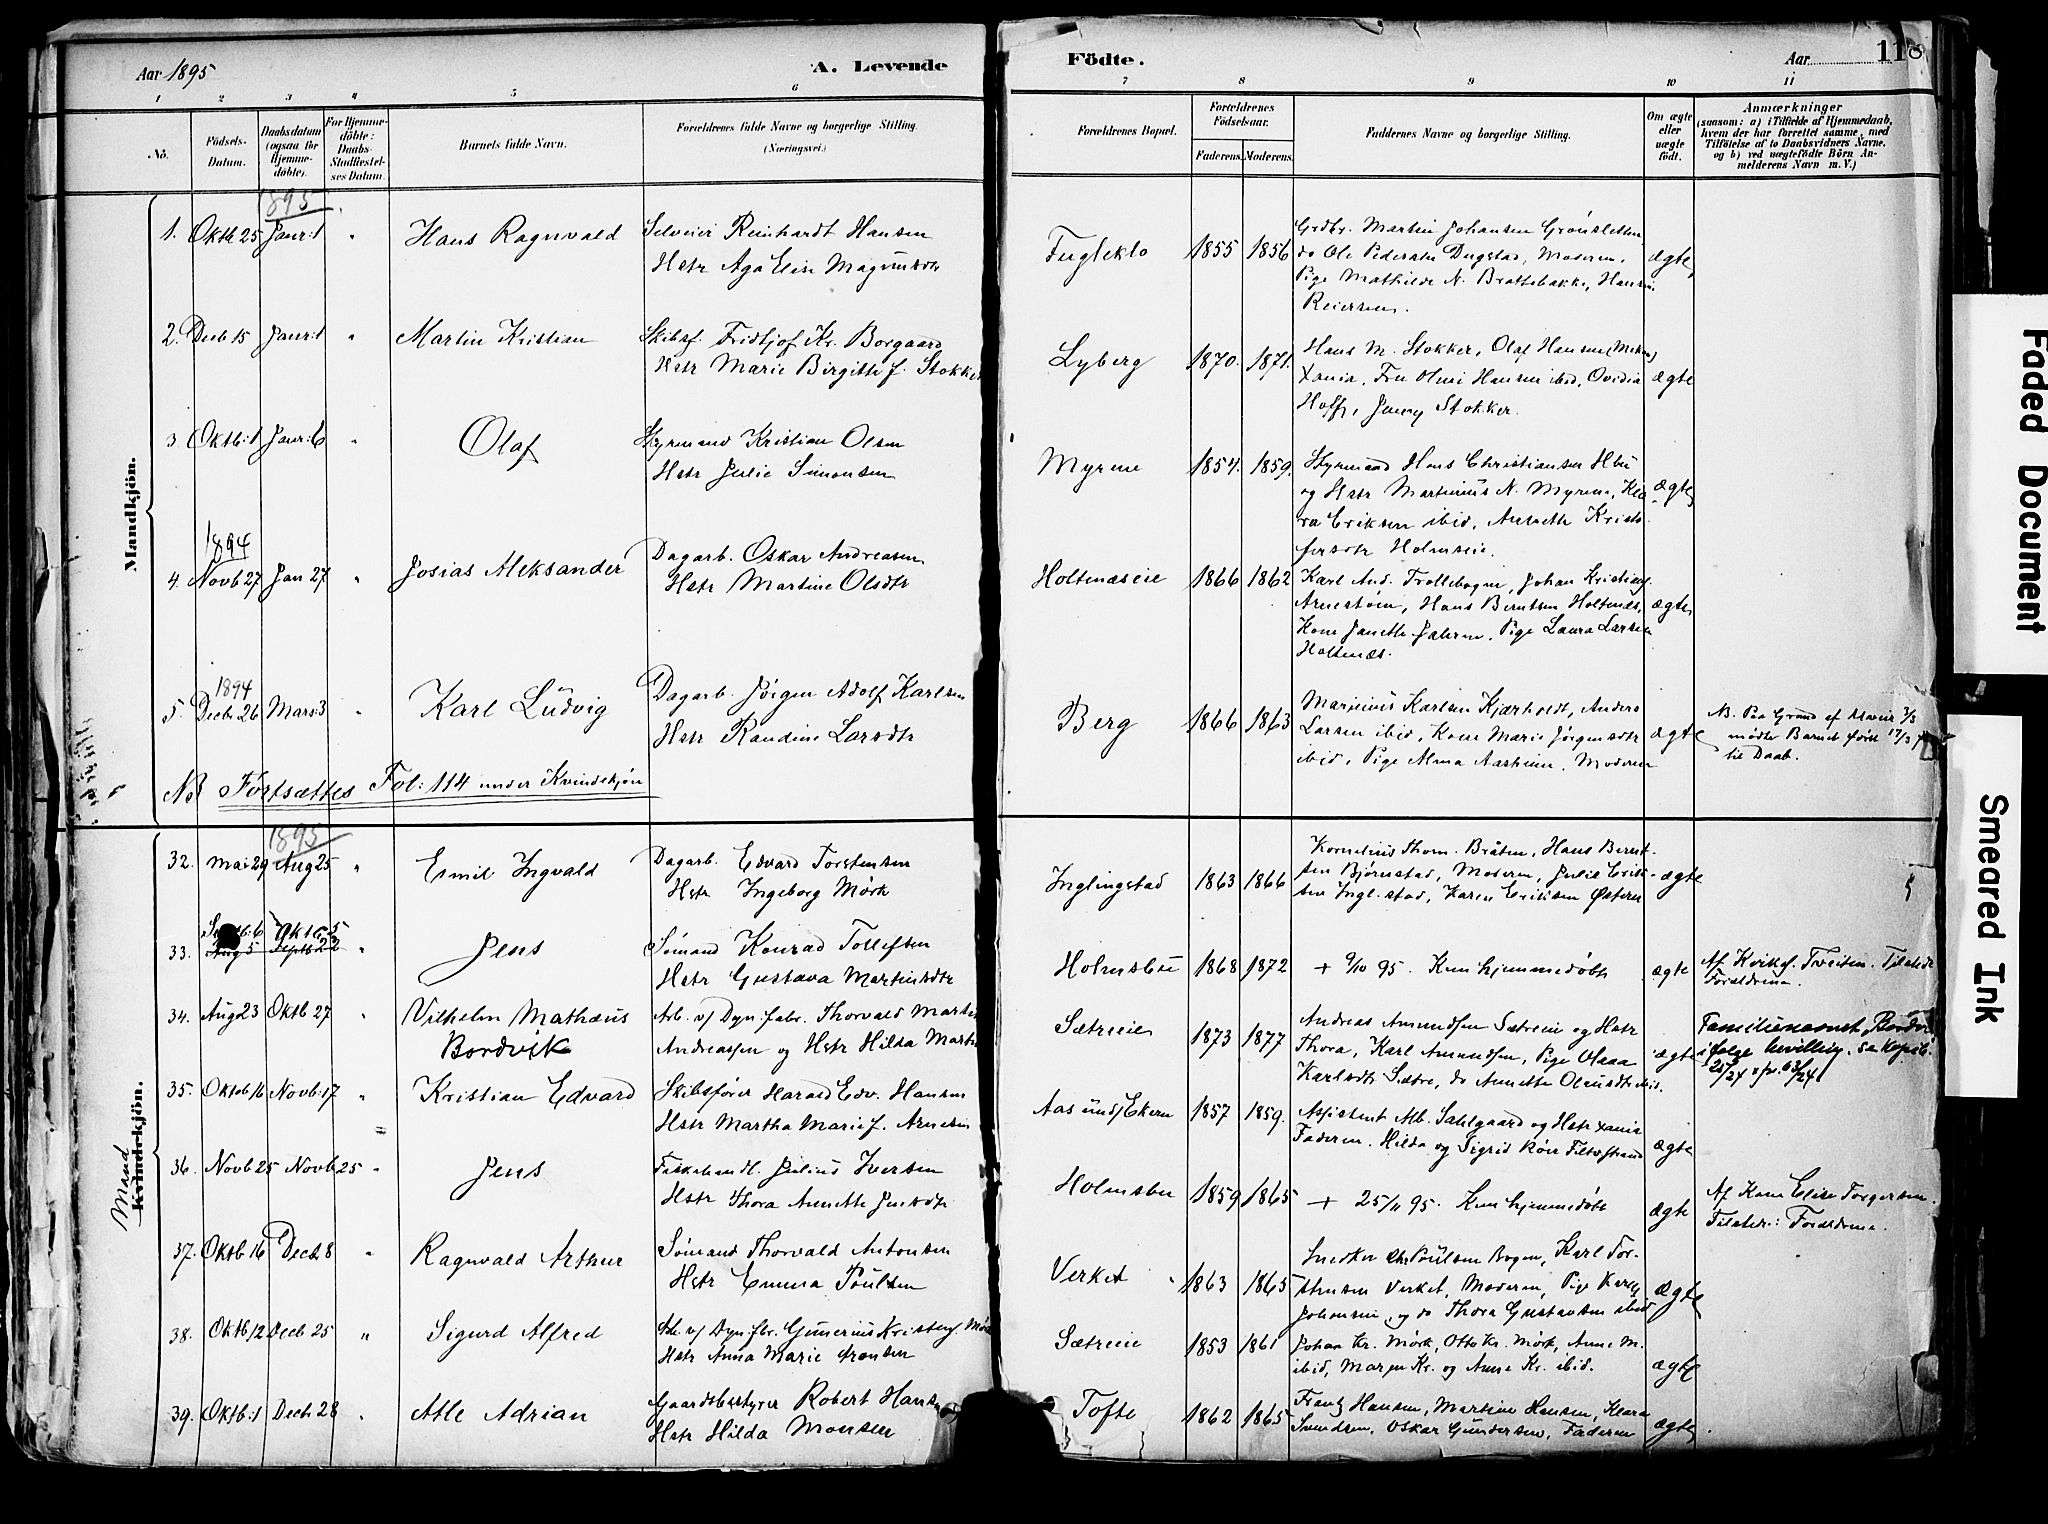 Aar 1895
A. Levende
Födte.
Aar
118
1 2 3 4 5 6 7 8 9 10 11
No.
Födsels-Datum.
Daabsdatum (ogsaa for Hjemme-döbte).
For Hjemme-döbte: Daabs-Stadfæstel-ses Datum.
Barnets fulde Navn.
Forældrenes fulde Navne og borgerlige Stilling. (Næringsvei.)
Forældrenes Bopæl.
Forældrenes Födselsaar.
Faderens. Moderens.
Faddernes Navne og borgerlige Stilling.
Om ægte eller uægte födt.
Anmærkninger
(saasom: a) i Tilfælde af Hjemmedaab, hvem der har forrettet samme, med Tilföielse af to Daabsvidners Navne, og b) ved uægtefödte Börn An-melderens Navn m. V.)
Mandkjön.
1895
1. Oktb 25 Janr: 1 " Hans Ragnvald
Selveier Reinhardt Hansen
Hstr Aga Elise Magnusdtr
Fugleklo 1855 1856
Grdbr. Martin Johansen Grönsletten,
do Ole Pedersen Dugstad, Moderen,
Pige Mathilde N. Brattebakke, Hansine
Reiersen.
ægte
2. Decb 15 Janr: 1 " Martin Kristian
Skibsf. Fridtjof Kr. Borgaard
Hstr Marie Birgitte f. Stokker
Lyberg 1870. 1871.
Hans M. Stokker, Olaf Hansen
Xania, Fru Olusi Hansen ibid, Ovidia
Hoff, Jenny Stokker.
ægte
3. Oktb: 1 Janr: 6 " Olaf
Styrmand Kristian Olsen
Hstr Julie Simonsen
Myrene 1854. 1859.
Styrmand Hans Christiansen
og Hstr Martinius N. Myrene, Kla-
ra Eriksen ibid, Annethe Kristo-
fersdtr Holmseie.
ægte
1894
4. Novb 27 Jan 27 " Josias Aleksander
Dagarb. Oskar Andreasen
Hstr Martine Olsdtr
Holtenæseie 1866 1862
Karl And. Trollebogen, Johan Kristians.
Arnestøen, Hans Berntsen Holtenæs,
Kone Janette, Pige Laura Larsen
Holtenæs.
ægte
1894
5. Decb. 26 Mars: 3 " Karl Ludvig
Dagarb. Jörgen Adolf Karlsen
Hstr Randine Larsdtr
Berg 1866 1863
Marinius Karlsen Kjærholdt, Anders
Larsen ibid, Kone Marie Jørgensdtr
ibid, Pige Alma Aashim, Moderen
ægte
N. Paa Grund af Uveir 3/3
mødte Barnet først 17/3
til Daab.
NB Fortsættes Fol: 114 under Kvindekjön
Mand
Kvindekjön.
1895
32. Mai 29 Aug 25 " Emil Ingvald
Dagarb. Edvard Torstensen
Hstr Ingeborg Mörk
Inglingstad 1863 1866
Kornelius Thom. Bråten, Hans Bernt-
sen Björnstad, Moderen, Julie Erik-
sen Inglistad, Karen Eriksen Østern
ægte
33. Septb. 6 Oktb 5
Aug 5 Septb 22 " Jens
Sømand Konrad Tollefsen
Hstr Gustava Martinsdtr
Holmsbu 1868 1872
+ 9/10 95. Kun hjemmedøbt
ægte
Af Tveiten. Tilstede
Forældrene.
34. Aug 23 Oktb 27 " Vilhelm Mathæus
Bordvik
Arb. v/ Dyn. fabr. Thorvald Martin
Andreassen og Hstr Hilda Martin
Sætreeie 1873 1877
Andreas Amundsen Sætreeie og Hstr
Thora, Karl Amundsen, Pige Olava
Karlsdtr Sætre, do Annette Olausdtr ibid.
ægte
Familienavnet Bordvik
ifølge bevilling, se kopib.
25/24 s/n. 63/24
35. Oktob 16 Novb: 17 " Kristian Edvard
Skibsfører Harald Edv. Hansen
Hstr Martha Marie f. Arnesen
Aasund/Ekern 1857 1859.
Assistent Alb. Sahlgaard og Hstr Xania
Faderen. Hilda og Sigrid Röer Filtvetstrand
ægte
36. Novb 25 Novb 25 " Jens
Fiskehandl. Julius Iversen
Hstr Thora Annette Jensdtr
Holmsbu 1859 1865
+ 25/11 95. Kun hjemmedøbt
ægte
Af Kone Elise Torgersen.
Tilstede: Forældrene.
37. Oktb 16 Decb 8 " Ragnvald Arthur
Sømand Thorvald Antonsen
Hstr Emma Poulsen
Verket 1863 1865
Snedker Chr Poulsen Bogen, Karl Tor-
stensen Verket, Moderen, Pige
Johansen, og do Thora Gustavsen ibid
ægte
38. Oktb 12 Decb 25 " Sigurd Alfred
Arb. v/ Dyn. fbr. Gunerius Kristens. Mörk
Hstr Anna Marie Aronsen
Sætreeie 1853 1861
Johan Kr. Mörk, Otto Kr. Mörk, Anne M.
ibid, Maren Kr. og Anne Kr. ibid.
ægte
39. Oktb: 1 Decb 28 " Atle Adrian
Gaardsbestyrer Robert Hansen
Hstr Hilda Monsen
Tofte 1862 1865
Frantz Hansen, Martine Hansen, Klara
Svendsen, Oskar Gundersen, Faderen
ægte.
Faded Document
Smeared Ink